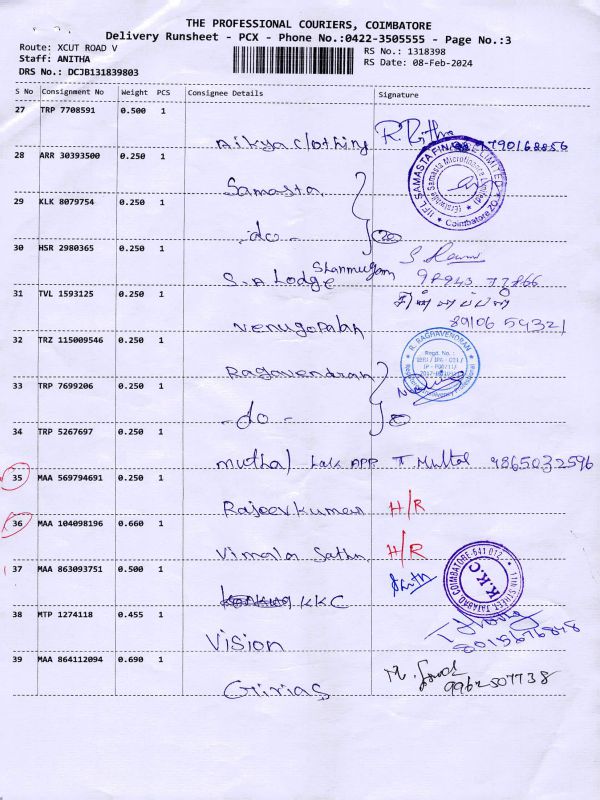 THE PROFESSIONAL COURIERS, COIMBATORE
Delivery Runsheet - PCX - Phone No.:0422-3505555 - Page No.:3
Route: XCUT ROAD V
RS No.: 1318398
Staff: ANITHA
RS Date: 08-Feb-2024
DRS No.: DCJB131839803
S No Consignment No Weight PCS Consignee Details Signature
27 TRP 7708591 0.500 1
Nikya clothing R.Ritha 9790168856
28 ARR 30393500 0.250 1
Samasta
IIFL SAMASTA FINANCE LIMITED
(Formerly Samasta Microfinance Limited)
Coimbatore ZO
29 KLK 8079754 0.250 1
-do-
30 HSR 2980365 0.250 1
S.A Lodge Shanmugam 98943 77866
31 TVL 1593125 0.250 1
Venugopalan 89106 54321
32 TRZ 115009546 0.250 1
Ragavendran
R. RAGHAVENDRAN
Regd. No.:
33 TRP 7699206 0.250 1
-do-
34 TRP 5267697 0.250 1
muthal Lak APP T. Muthal 9865032596
35 MAA 569794691 0.250 1
Rajeevkumar H/R
36 MAA 104098196 0.660 1
Vimala Sathu H/R
37 MAA 863093751 0.500 1
KKC
K.K.C
11TH STREET, TATABAD, COIMBATORE 641 012
38 MTP 1274118 0.455 1
Vision 8015676848
39 MAA 864112094 0.690 1
Girias 9962507738